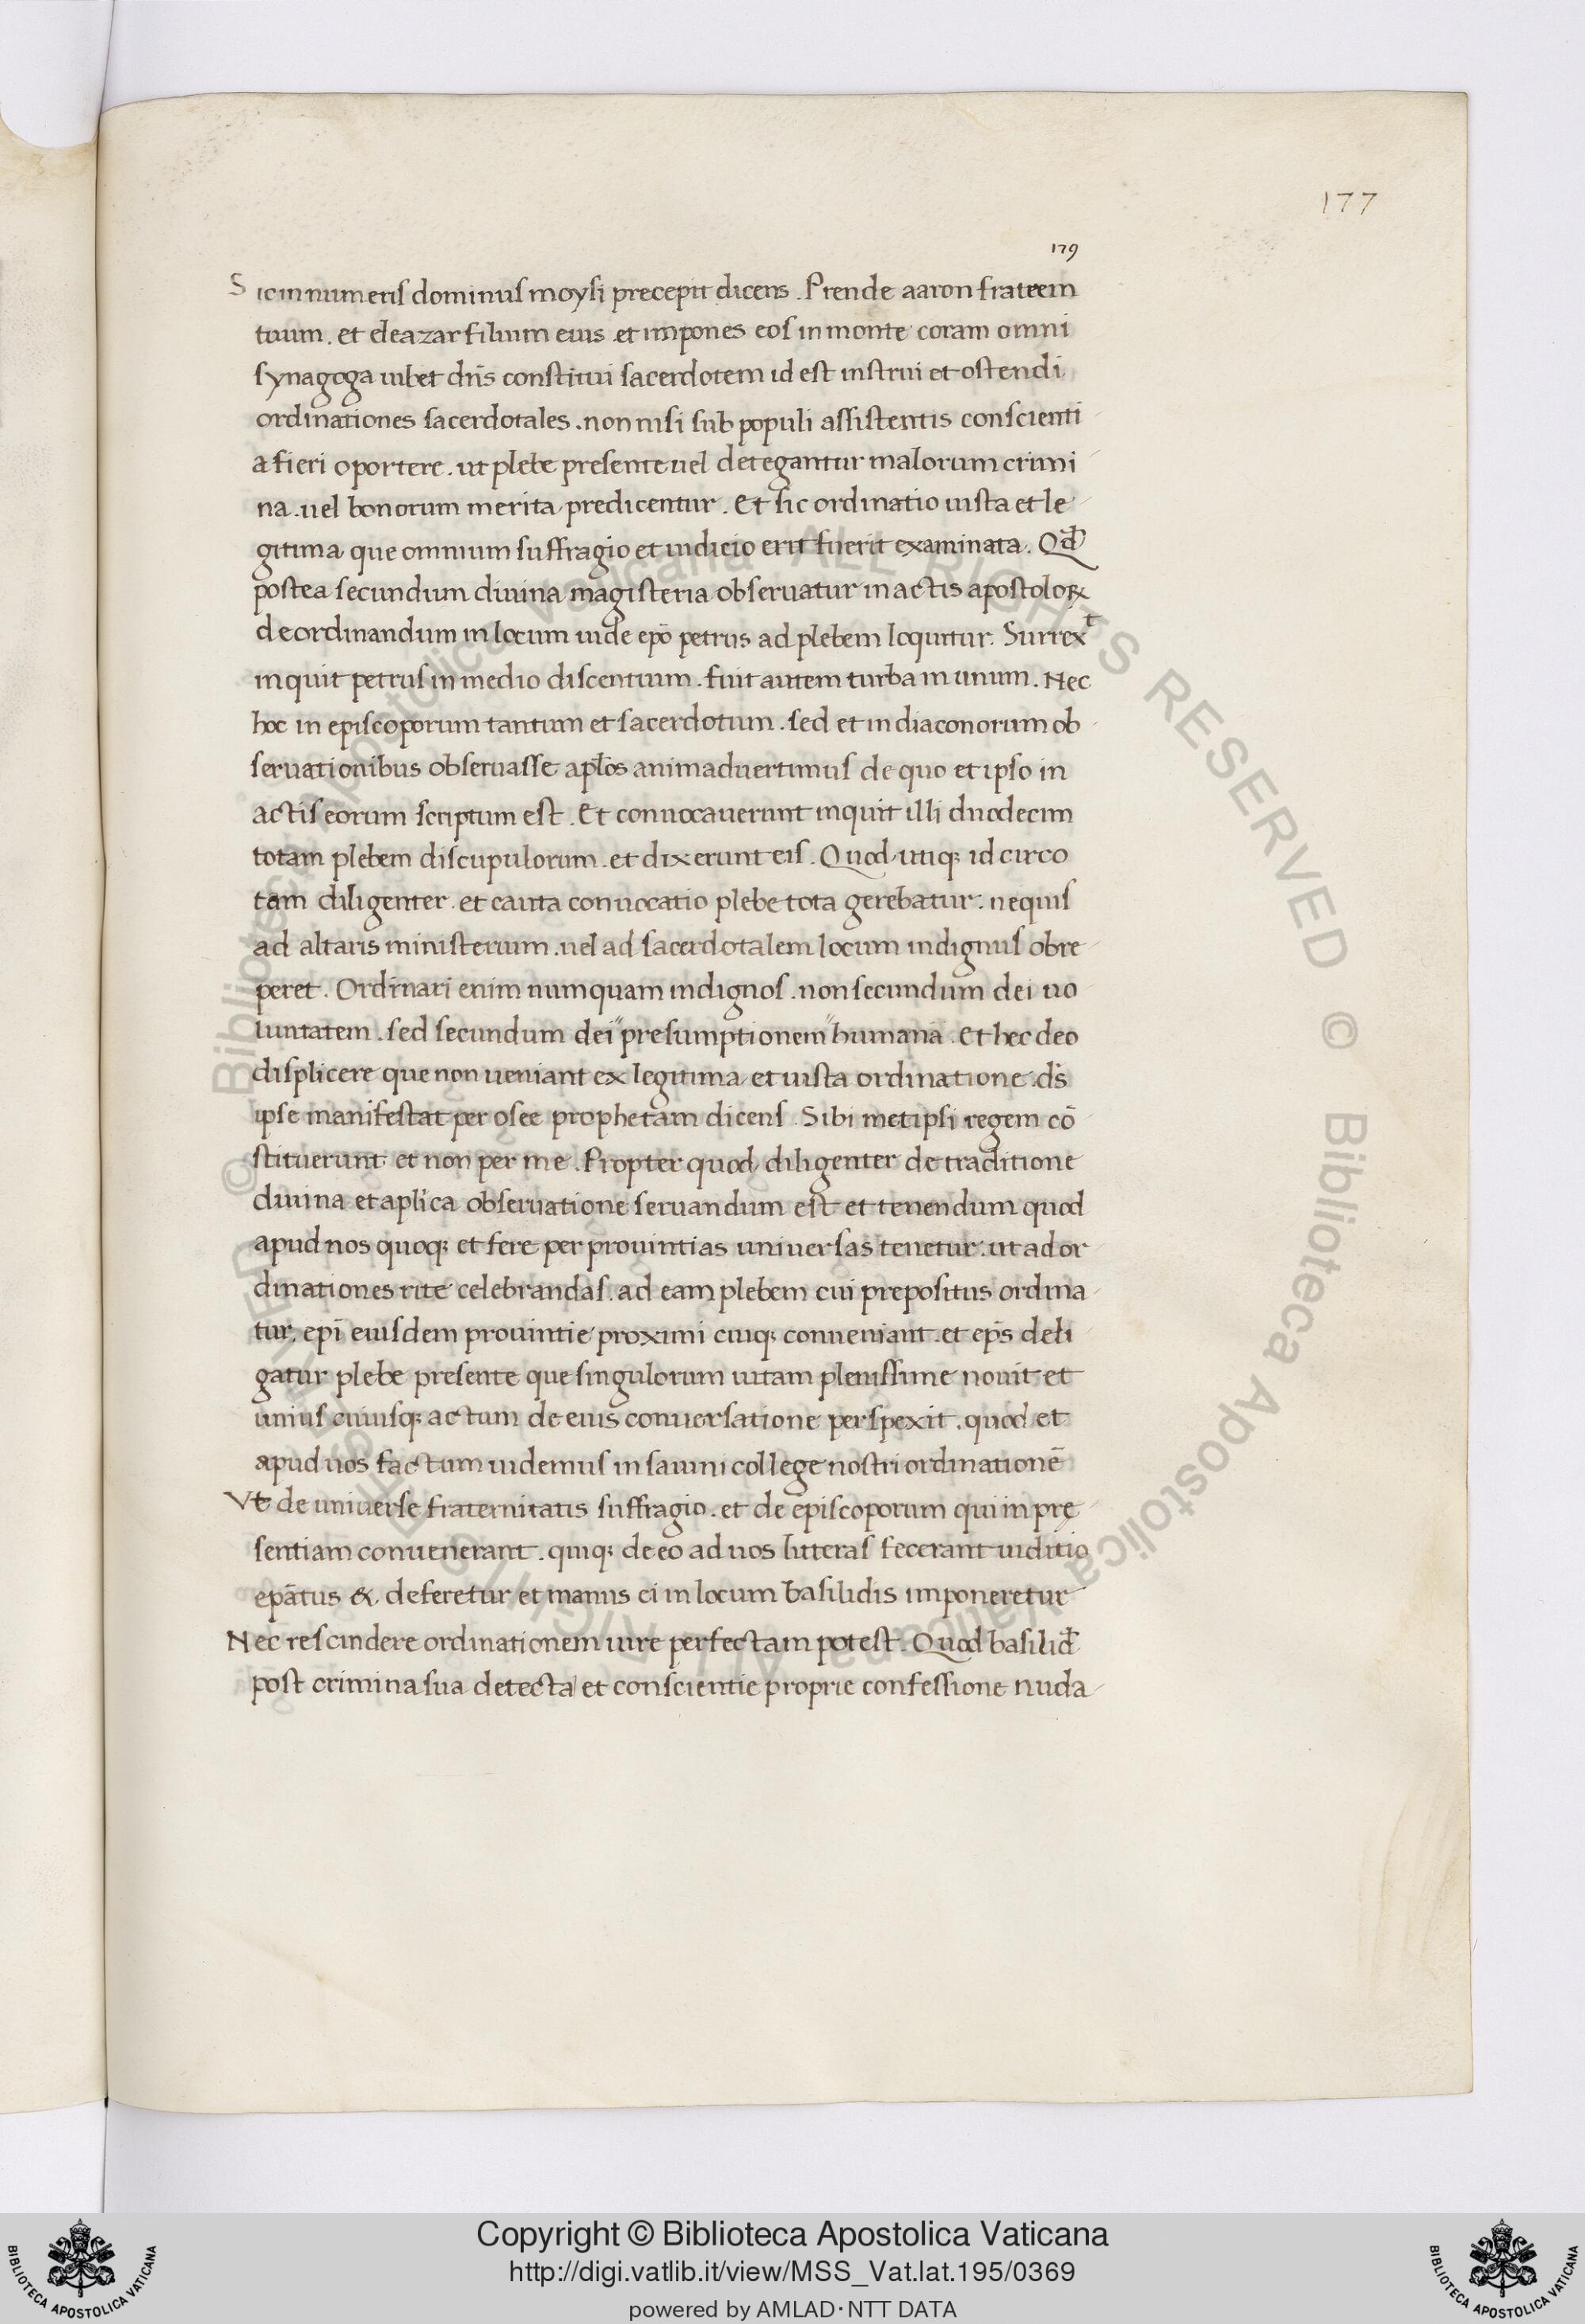 177
179
Sic in numeris dominus moysi precepit dicens . Prende aaron fratrem
tuum . et eleazar filium eius . et impones eos in monte coram omni
synagoga iubet dn̄s constitui sacerdotem id est instrui et ostendi
ordinationes sacerdotales . non nisi sub populi assistentis conscienti
a fieri oportere . ut plebe presente uel detegantur malorum crimi
na . uel bonorum merita predicentur . Et sic ordinatio iusta et le
gitima que omnium suffragio et iudicio erit fuerit examinata . Qđ
postea secundum diuina magisteria obseruatur in actis apostoloꝝ
de ordinandum in locum iude epō petrus ad plebem loquitur . Surrexᵗ
inquit petrus in medio discentium . fuit autem turba in unum . Nec
hoc in episcoporum tantum et sacerdotum . sed et in diaconorum ob
seruationibus obseruasse apl̄os animaduertimus de quo et ipso in
actis eorum scriptum est . Et conuocauerunt inquit illi duodecim
totam plebem discupulorum . et dixerunt eis . Quod utiq; id circo
tam diligenter . et cauta conuocatio plebe tota gerebatur . nequis
ad altaris ministerium . uel ad sacerdotalem locum indignus obre
peret . Ordinari enim numquam indignos . non secundum dei uo
luntatem . sed secundum dei" presumptionem" humanā . Et hec deo
displicere que non ueniant ex legitima et iusta ordinatione . ds̄
ipse manifestat per osee prophetam dicens . Sibi metipsi regem cō
stituerunt et non per me . Propter quod diligenter de traditione
diuina et apl̄ica obseruatione seruandum est et tenendum quod
apud nos quoq; et fere per prouintias uniuersas tenetur . ut ad or
dinationes rite celebrandas . ad eam plebem cui prepositus ordina
tur . epī eiusdem prouintie proximi cuiq; conueniant . et ep̄s deli
gatur plebe presente que singulorum uitam plenissime nouit et
unius cuiusq; actum de eius conuersatione perspexit . quod et
apud uos factum uidemus in sauini college nostri ordinationē
Vt de uniuerse fraternitatis suffragio . et de episcoporum qui in prę
sentiam conuenerant . quiq; de eo ad uos litteras fecerant iuditio
epātus & deferetur et manus ei in locum basilidis imponeretur
Nec rescindere ordinationem iure perfectam potest . Quod basilid̄
post crimina sua detecta et conscientie proprie confessione nuda
© Biblioteca Apostolica Vaticana ALL RIGHTS RESERVED © Biblioteca Apostolica Vaticana ALL RIGHTS RESERVED
Copyright © Biblioteca Apostolica Vaticana
http://digi.vatlib.it/view/MSS_Vat.lat.195/0369
powered by AMLAD·NTT DATA
BIBLIOTECA APOSTOLICA VATICANA
BIBLIOTECA APOSTOLICA VATICANA